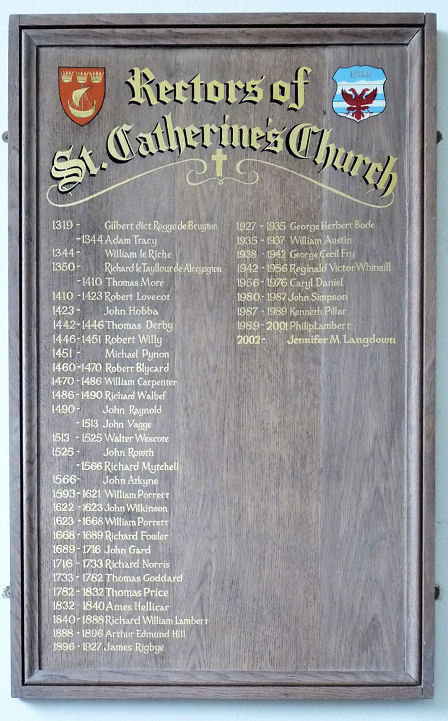 Rectors of
St. Catherine's Church
1319 - Gilbert dict. Rogge de Bruyton
-1344 Adam Tracy
1344 - William le Riche
1350 - Richard le Taylour de Alcryngton
-1410 Thomas More
1410 - 1423 Robert Lovecot
1423 - John Hobba
1442 - 1446 Thomas Derby
1446 - 1451 Robert Willy
1451 - Michael Pynon
1460 - 1470 Robert Blycard
1470 - 1486 William Carpenter
1486 - 1490 Richard Walbef
1490 - John Raynold
- 1513 John Vagge
1513 - 1525 Walter Wescote
1525 - John Rowth
- 1566 Richard Mytchell
1566 - John Atkyns
1593 - 1621 William Porrett
1622 - 1623 John Wilkinson
1623 - 1668 William Porrett
1668 - 1689 Richard Fowler
1689 - 1716 John Gard
1716 - 1733 Richard Norris
1733 - 1782 Thomas Goddard
1782 - 1832 Thomas Price
1832 - 1840 Ames Hellicar
1840 - 1888 Richard William Lambert
1888 - 1896 Arthur Edmund Hill
1896 - 1927 James Rigbye
1927 - 1935 George Herbert Bode
1935 - 1937 William Austin
1938 - 1942 George Cecil Fry
1942 - 1956 Reginald Victor Whinsill
1956 - 1976 Caryl Daniel
1980 - 1987 John Simpson
1987 - 1989 Kenneth Pillar
1989 - 2001 Philip Lambert
2002 - Jennifer M. Langdown